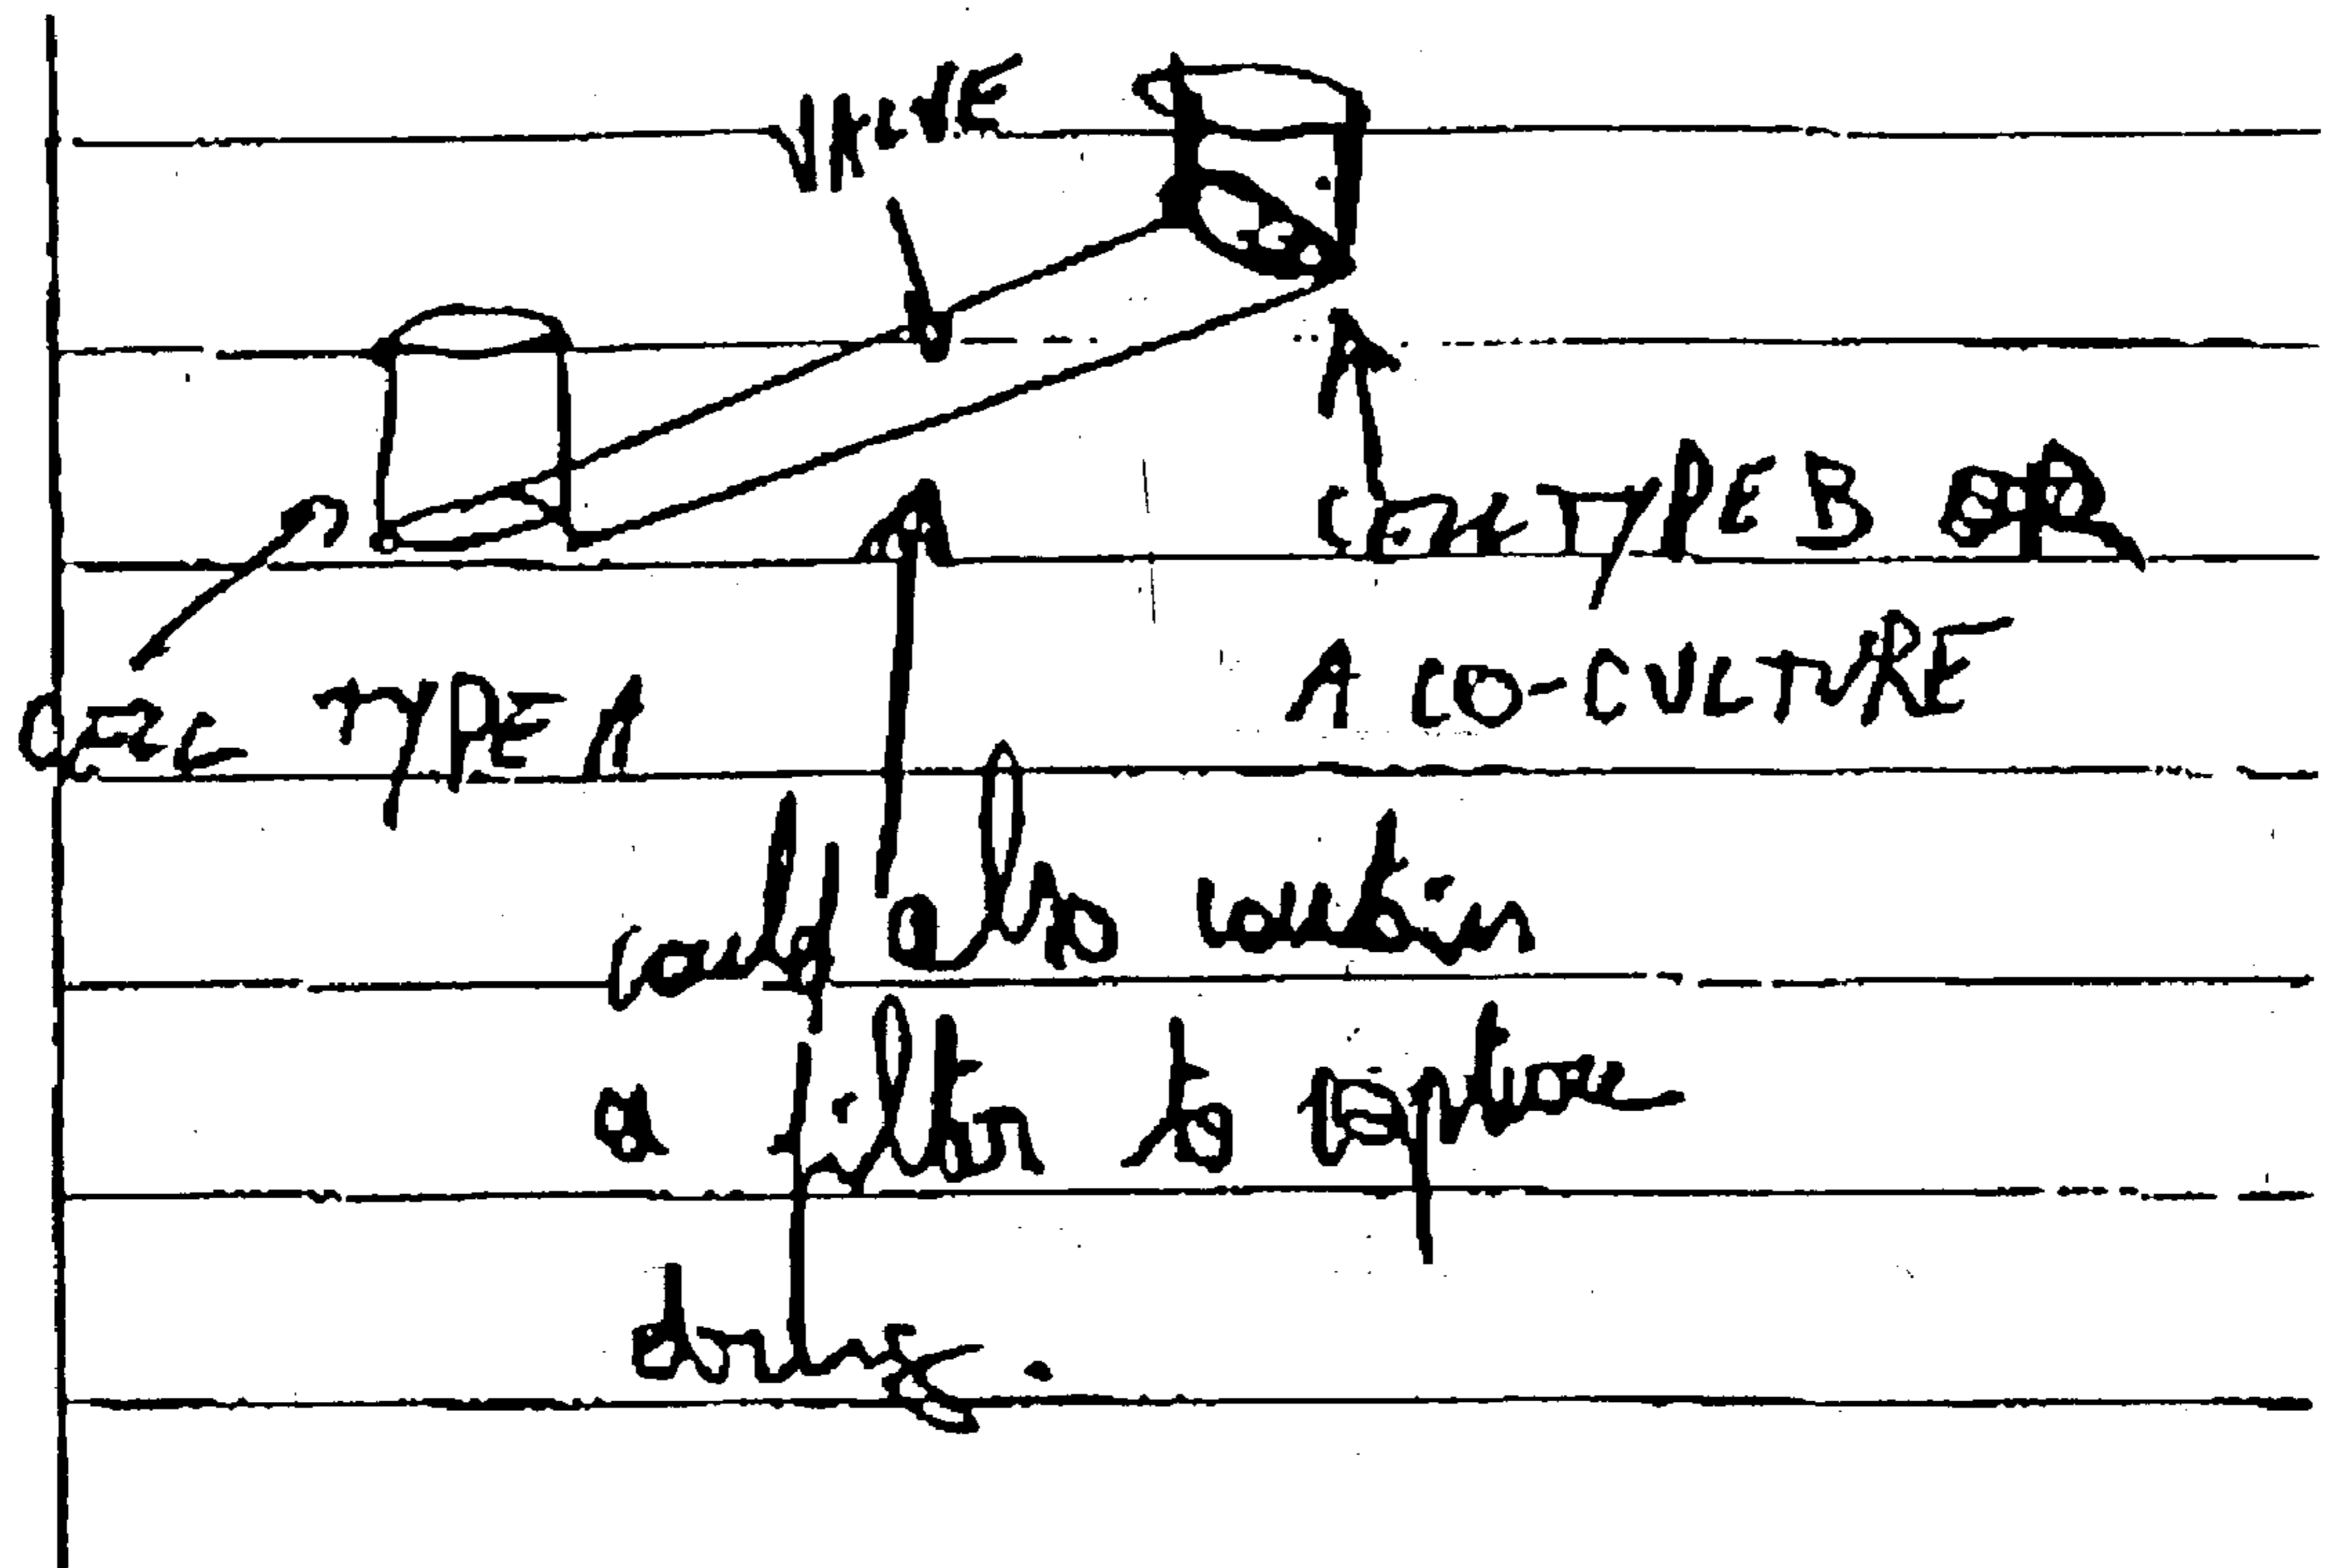 VALVE
CELL TYPE B OR
A CO-CULTURE
CELL TYPE A
could also contain
a filter to capture